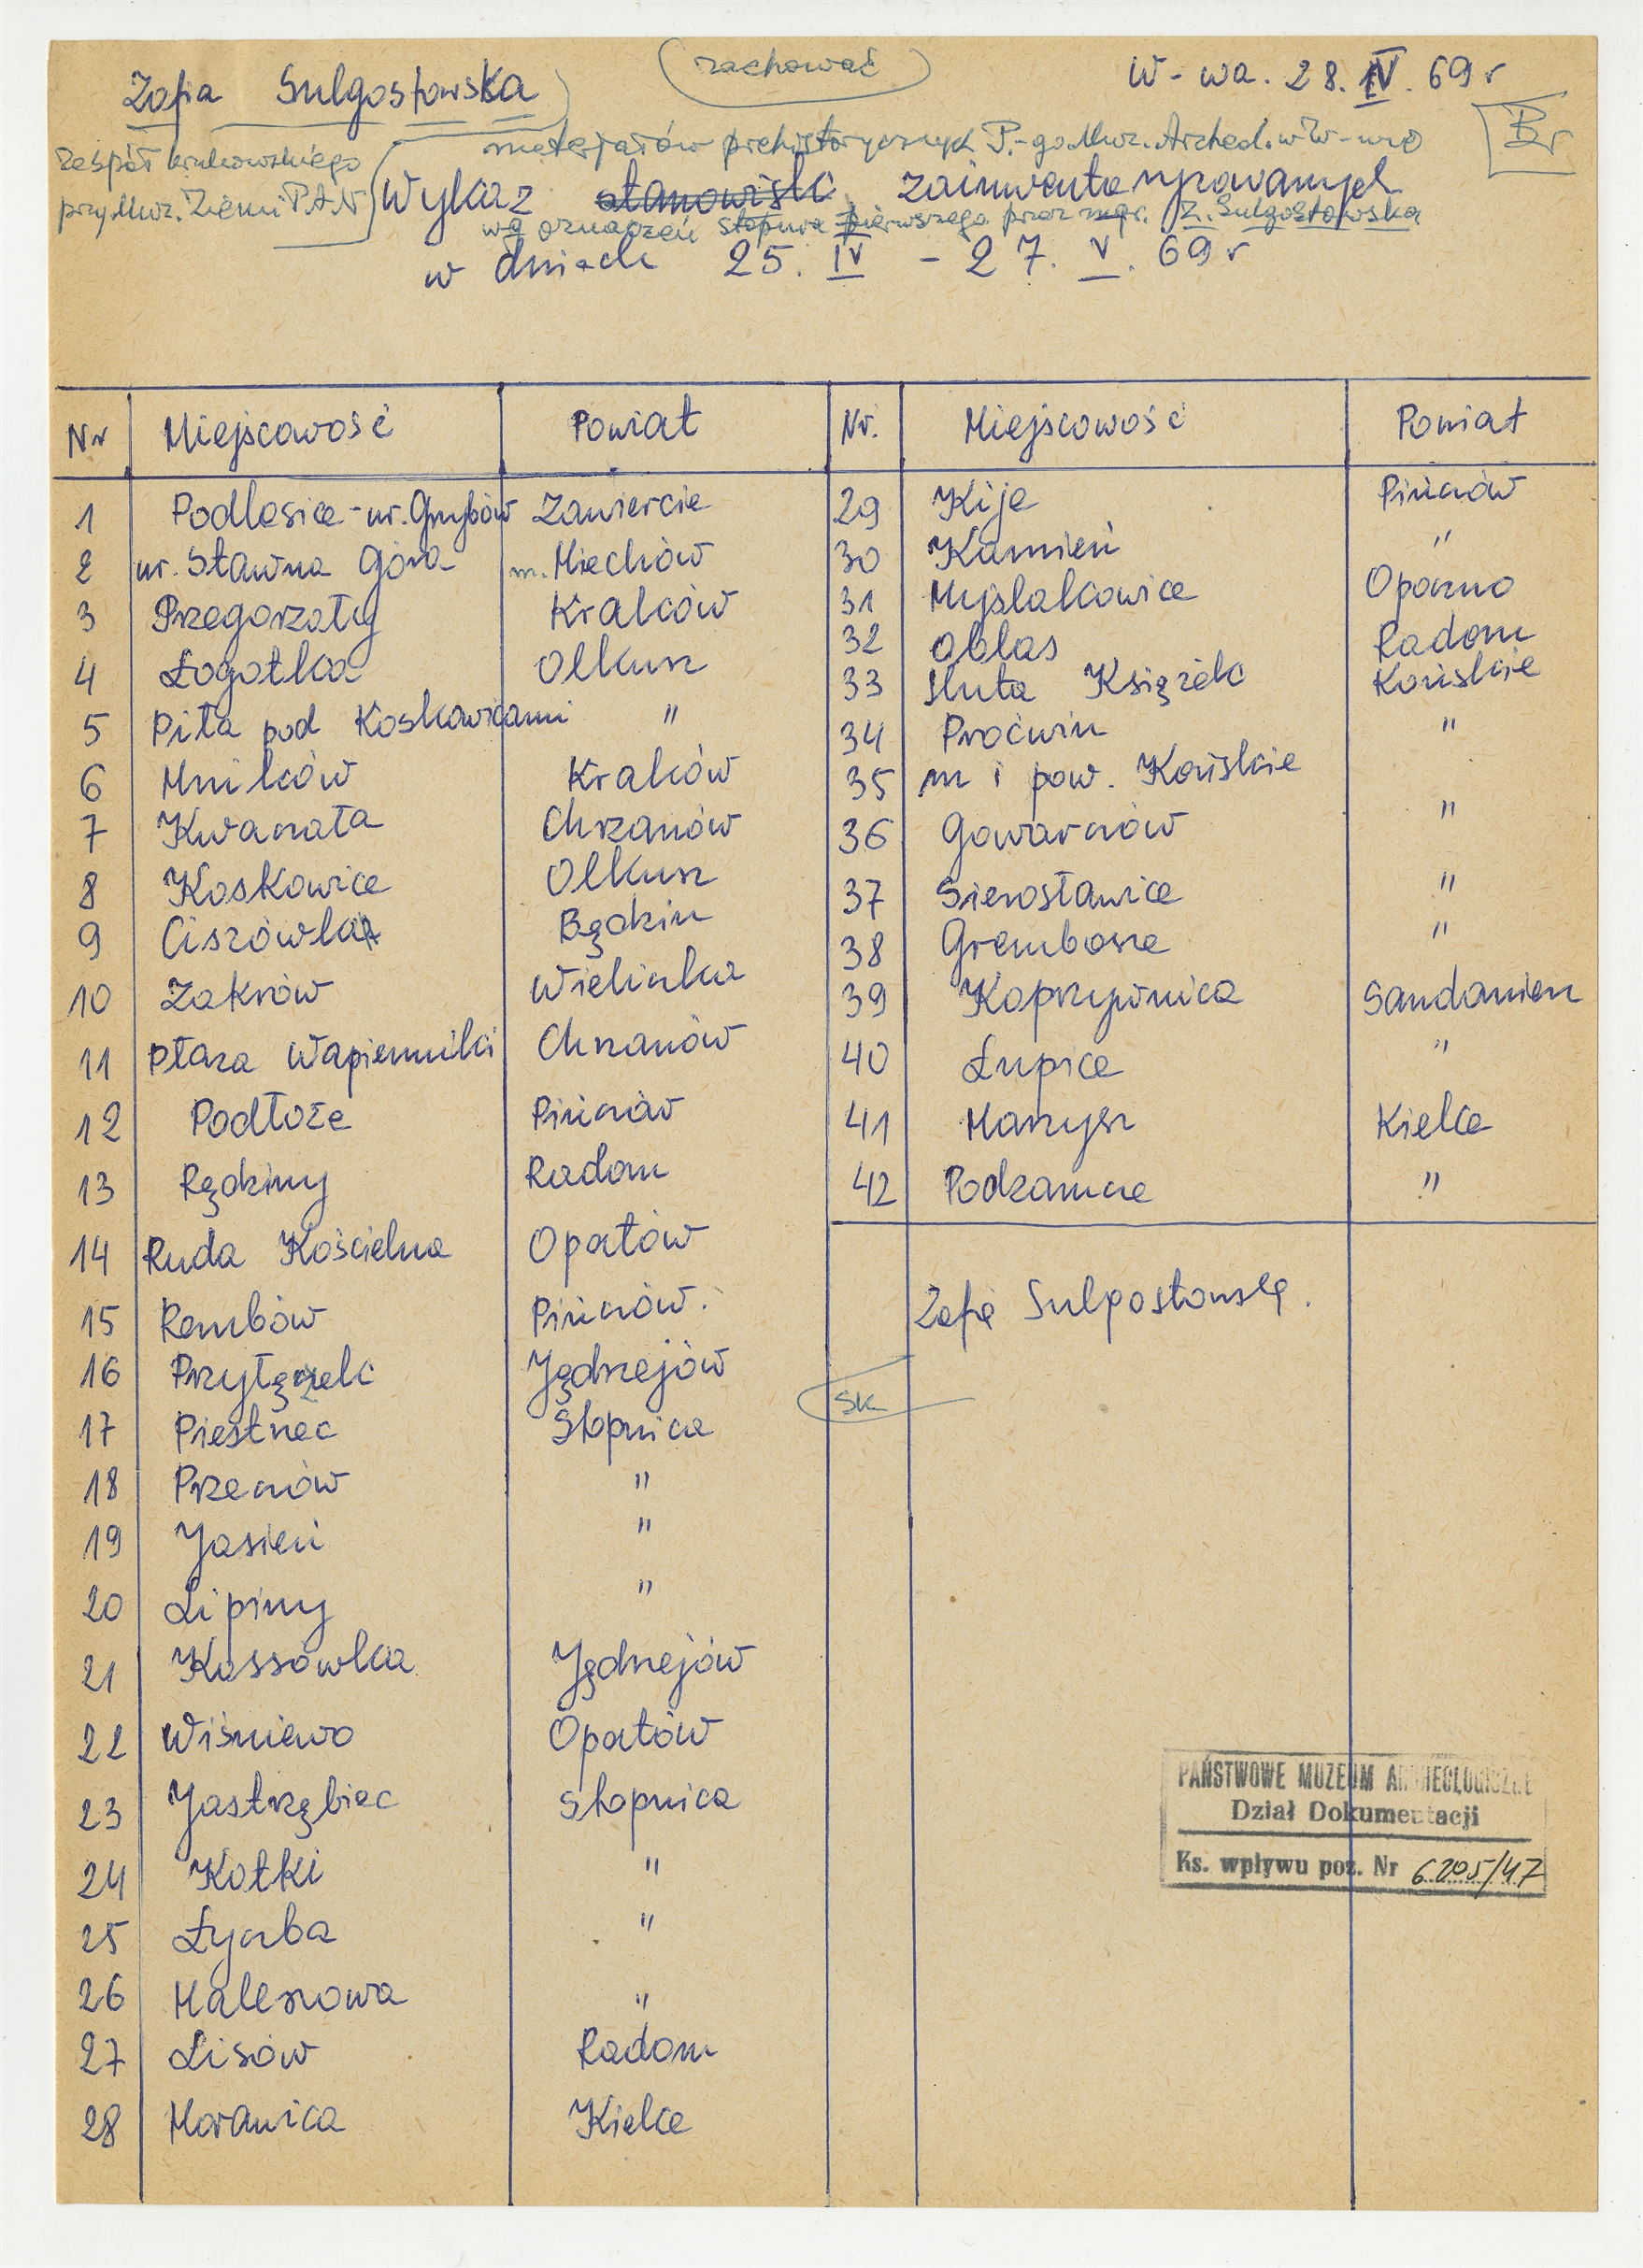 (zachować)
W-wa. 28. IV. 69 r
Zofia Sulgostowska
Br
Zespół krukowskiego
przy Muz. Ziemi PAN
materjałów prehistorycznych P.-go Muz. Archeol. w W-wie
Wykaz stanowisk zainwentaryzowanych
wg oznaczeń stopnia pierwszego przez mgr. Z. Sulgostowską
w dniach 25. IV - 27. V. 69 r
Nr Miejscowość Powiat Nr. Miejscowość Powiat
1 Podlesice - ur. Grzybów Zawiercie 29 Kije Pińczów
2 ur. Sławna Góra m. Miechów 30 Kamień "
3 Przegorzały Kraków 31 Myślakowice Opoczno
4 Łogotka Olkusz 32 Oblas Radom
5 Piła pod Koskowicami " 33 Huta Książek Końskie
6 Mników Kraków 34 Proćwin "
7 Kwaczała Chrzanów 35 m i pow. Końskie
8 Koskowice Olkusz 36 Gowarczów "
9 Ciszówka Będzin 37 Sierosławice "
10 Zakrów Wieliczka 38 Grembosze "
11 Płaza Wapienniki Chrzanów 39 Koprzywnica Sandomierz
12 Podłoże Pińczów 40 Łupice "
13 Rędziny Radom 41 Maszysz Kielce
14 Ruda Kościelna Opatów 42 Podzamcze "
15 Rembów Pińczów.
16 Przyłęczek Jędrzejów
17 Piestrzec Stopnica
18 Przeczów "
19 Jasień "
20 Lipiny "
21 Kossówka Jędrzejów
22 Wiśniewo Opatów
23 Jastrzębiec Stopnica
24 Kotki "
25 Łyczba "
26 Maleszowa "
27 Lisów Radom
28 Morawica Kielce
Zofia Sulgostowska.
SK
PAŃSTWOWE MUZEUM ARCHEOLOGICZNE
Dział Dokumentacji
Ks. wpływu poz. Nr 6205/47